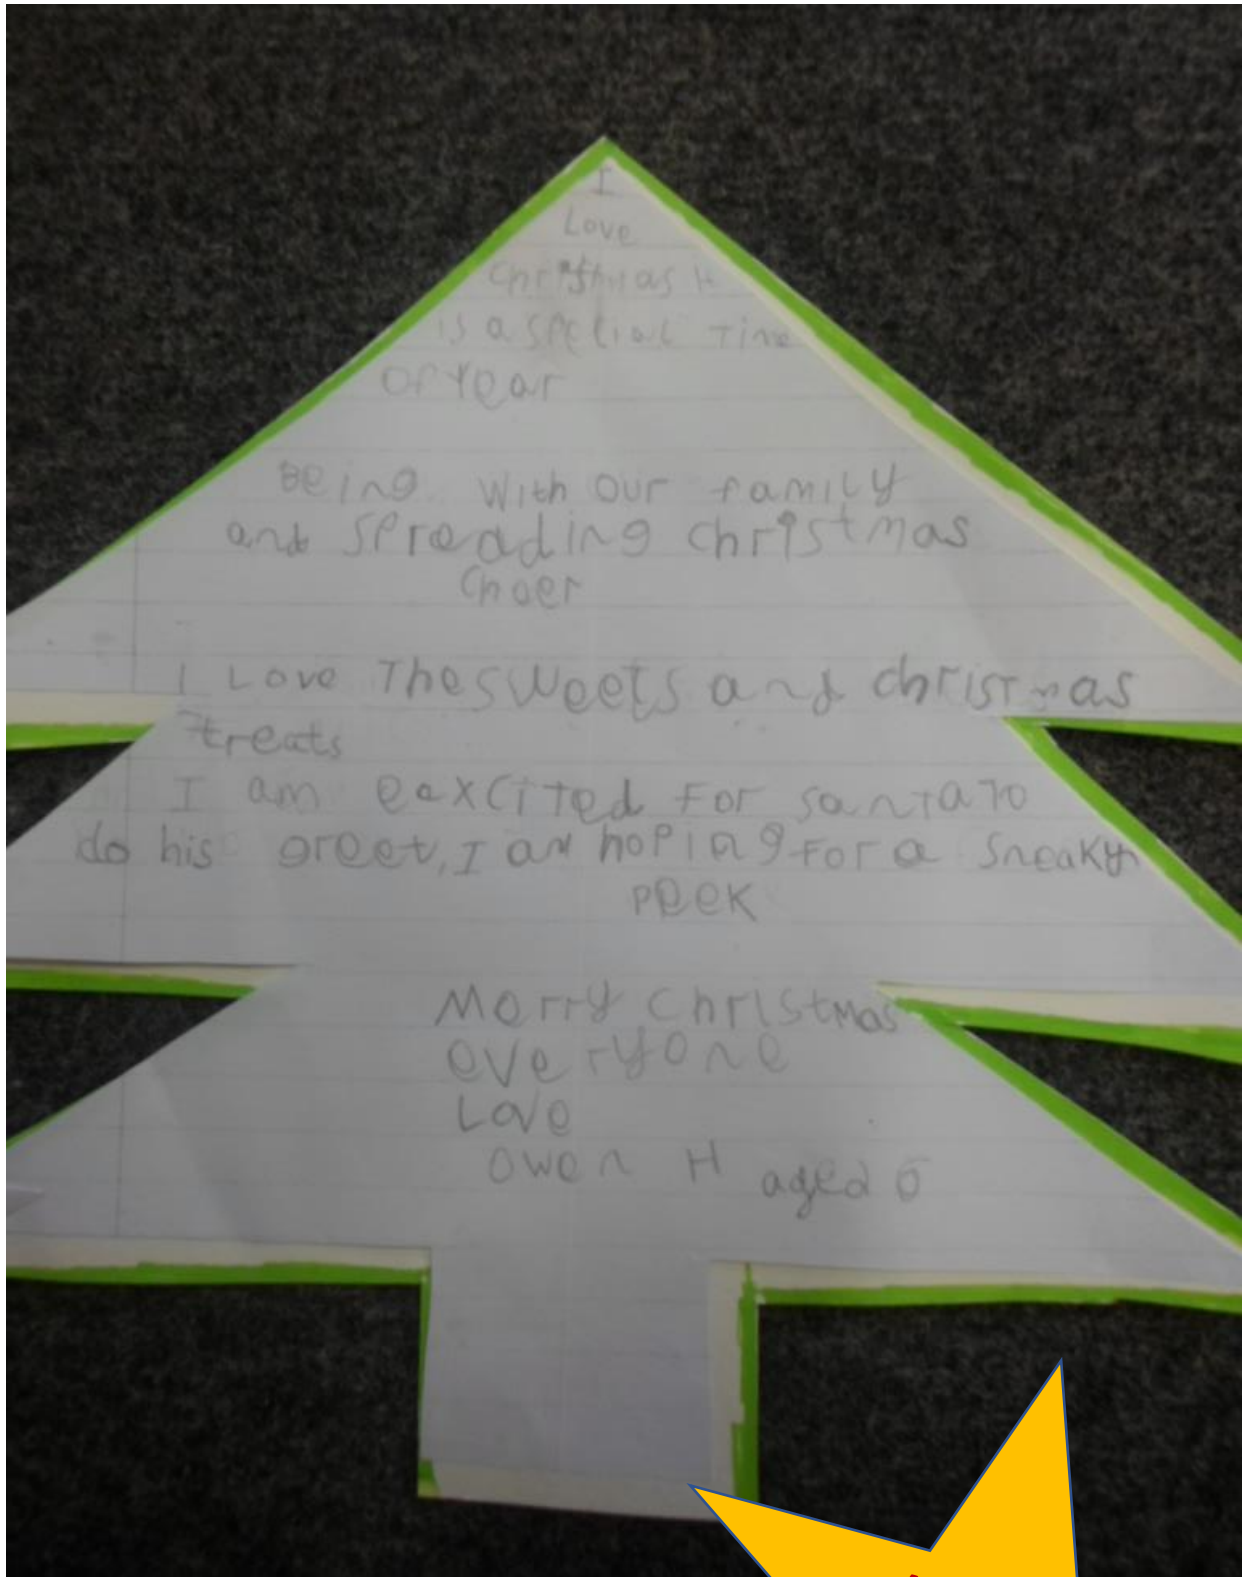 I
Love
christmas it
is a special Time
OF Year
Being with our family
and spreading christmas
cheer
I Love The sweets and christmas
treats
I am eaxcited For santa To
do his greet, I am hoping For a sneaky
peek
Merry Christmas
everyone
Love
owen H aged